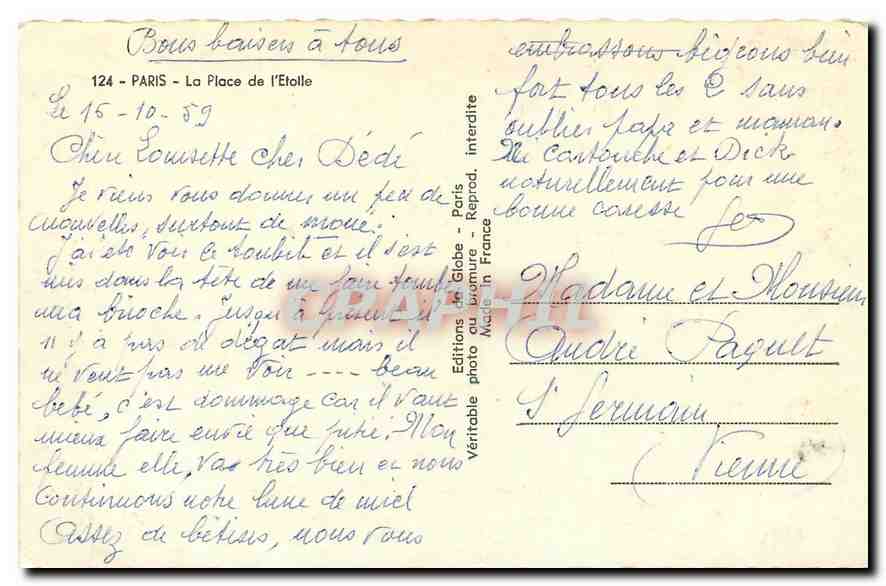 Bons baisers à tous
124 - PARIS - La Place de l'Etoile
Le 15-10-59
Chère Louisette cher Dédé
Je viens vous donner un peu de
nouvelles, surtout de moué.
J'ai été voir ce toubib et il s'est
mis dans la tête de me faire tomber
ma brioche. Jusqu'à présent il
n'y a pas de dégat mais il
ne veut pas me voir ---- beau
bébé, c'est dommage car il vaut
mieux faire envie que pitié. Mon
femme elle, va très bien et nous
continuons notre lune de miel
Assez de bêtises, nous vous
embrassons bigeons bien
fort tous les 2 sans
oublier papa et maman.
Ni Cartouche et Dick
naturellement pour une
bonne caresse
Editions du Globe - Paris
Véritable photo au bromure - Reprod. interdite
Made in France
CPAPHIL
Madame et Monsieur
André Paquet
St Germain
(Vienne)